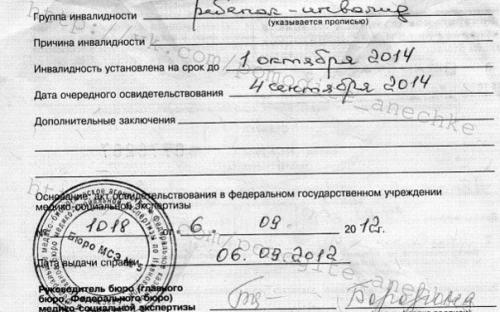 Группа инвалидности ребёнок-инвалид
(указывается прописью)
Причина инвалидности
Инвалидность установлена на срок до 1 октября 2014
Дата очередного освидетельствования 4 сентября 2014
Дополнительные заключения
Основание: акт освидетельствования в федеральном государственном учреждении
медико-социальной экспертизы
№ 1018 от 6. 09 2012г.
Бюро МСЭ №
Дата выдачи справки 06.09.2012
Руководитель бюро (главного
бюро, Федерального бюро)
медико-социальной экспертизы